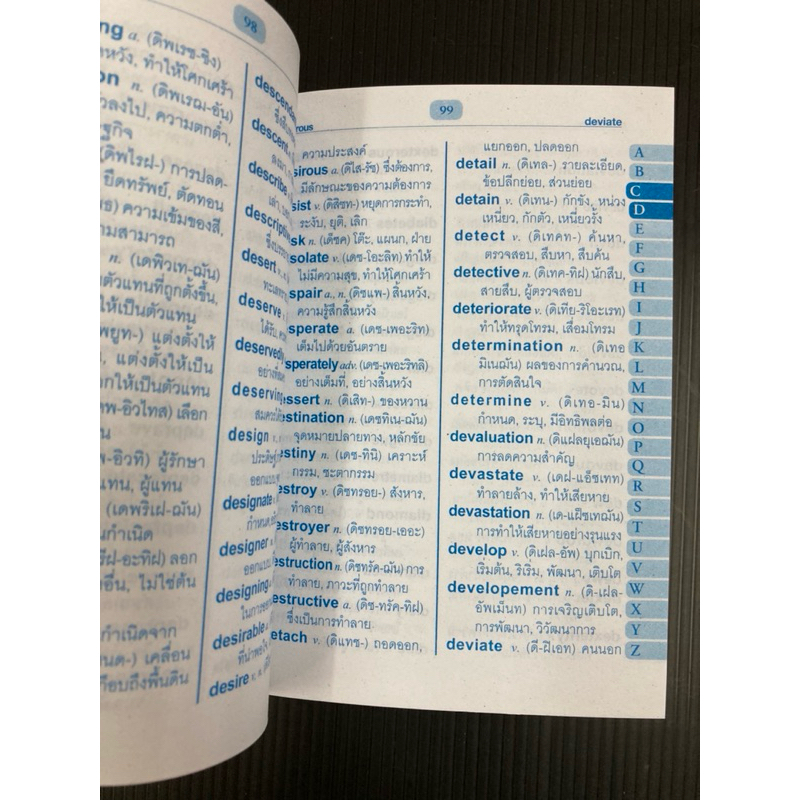 98
ng a. (ดิพเรซ-ซิง)
หวัง, ทำให้โศกเศร้า
on n. (ดิพเรฌ-อัน)
วลงไป, ความตกต่ำ,
(ดิพไรฝ-) การปลด-
ยึดทรัพย์, ตัดทอน
ความเข้มของสี,
ามสามารถ
n. (เดพิวเท-ฌัน)
ตัวแทนที่ถูกตั้งขึ้น,
ให้เป็นตัวแทน
พยูท-) แต่งตั้งให้
, แต่งตั้งให้เป็น
อกให้เป็นตัวแทน
พ-อิวไทส) เลือก
พ-อิวที) ผู้รักษา
แทน, ผู้แทน
(เดพริเฝ-ฌัน)
รีฝ-อะทิฝ) ลอก
งอื่น, ไม่ใช่ต้น
กำเนิดจาก
เคลื่อน
กือบถึงพื้นดิน
descend
descent
describe
descripti
desert
deserve
deservedly
deserving
design
designate
designer
designing
desirable
desire
99
irous
deviate
ความประสงค์
sirous a. (ดิไส-รัซ) ซึ่งต้องการ,
มีลักษณะของความต้องการ
sist v. (ดิสิซท-) หยุดการกระทำ,
ระงับ, ยุติ, เลิก
sk n. (เด็ซค) โต๊ะ, แผนก, ฝ่าย
solate v. (เดซ-โอะลิท) ทำให้
ไม่มีความสุข, ทำให้โศกเศร้า
spair a., n. (ดิซแพ-) สิ้นหวัง,
ความรู้สึกสิ้นหวัง
sperate a. (เดซ-เพอะริท)
เต็มไปด้วยอันตราย
sperately adv. (เดซ-เพอะริทลิ)
อย่างเต็มที่, อย่างสิ้นหวัง
essert n. (ดิเสิท-) ของหวาน
estination n. (เดซทิเน-ฌัน)
จุดหมายปลายทาง, หลักชัย
estiny n. (เดซ-ทินิ) เคราะห์
กรรม, ชะตากรรม
estroy v. (ดิซทรอย-) สังหาร,
ทำลาย
estroyer n. (ดิซทรอย-เออะ)
ผู้ทำลาย, ผู้สังหาร
estruction n. (ดิซทรัค-ฌัน) การ
ทำลาย, ภาวะที่ถูกทำลาย
estructive a. (ดิซ-ทรัค-ทิฝ)
ซึ่งเป็นการทำลาย
etach v. (ดิแทซ-) ถอดออก,
แยกออก, ปลดออก
detail n. (ดิเทล-) รายละเอียด,
ข้อปลีกย่อย, ส่วนย่อย
detain v. (ดิเทน-) กักขัง, หน่วง
เหนี่ยว, กักตัว, เหนี่ยวรั้ง
detect v. (ดิเทคท-) ค้นหา,
ตรวจสอบ, สืบหา, สืบค้น
detective n. (ดิเทค-ทิฝ) นักสืบ,
สายสืบ, ผู้ตรวจสอบ
deteriorate v. (ดิเทีย-ริโอะเรท)
ทำให้ทรุดโทรม, เสื่อมโทรม
determination n. (ดิเทอ
มิเนฌัน) ผลของการคำนวณ,
การตัดสินใจ
determine v. (ดิเทอ-มิน)
กำหนด, ระบุ, มีอิทธิพลต่อ
devaluation n. (ดีแฝลยุเอฌัน)
การลดความสำคัญ
devastate v. (เดฝ-แอ็ซเทท)
ทำลายล้าง, ทำให้เสียหาย
devastation n. (เด-แฝ็ซเทฌัน)
การทำให้เสียหายอย่างรุนแรง
develop v. (ดิเฝล-อัพ) บุกเบิก,
เริ่มต้น, ริเริ่ม, พัฒนา, เติบโต
developement n. (ดิ-เฝล-
อัพเม็นท) การเจริญเติบโต,
การพัฒนา, วิวัฒนาการ
deviate v. (ดี-ฝิเอท) คนนอก
A
B
C
D
E
F
G
H
I
J
K
L
M
N
O
P
Q
R
S
T
U
V
W
X
Y
Z